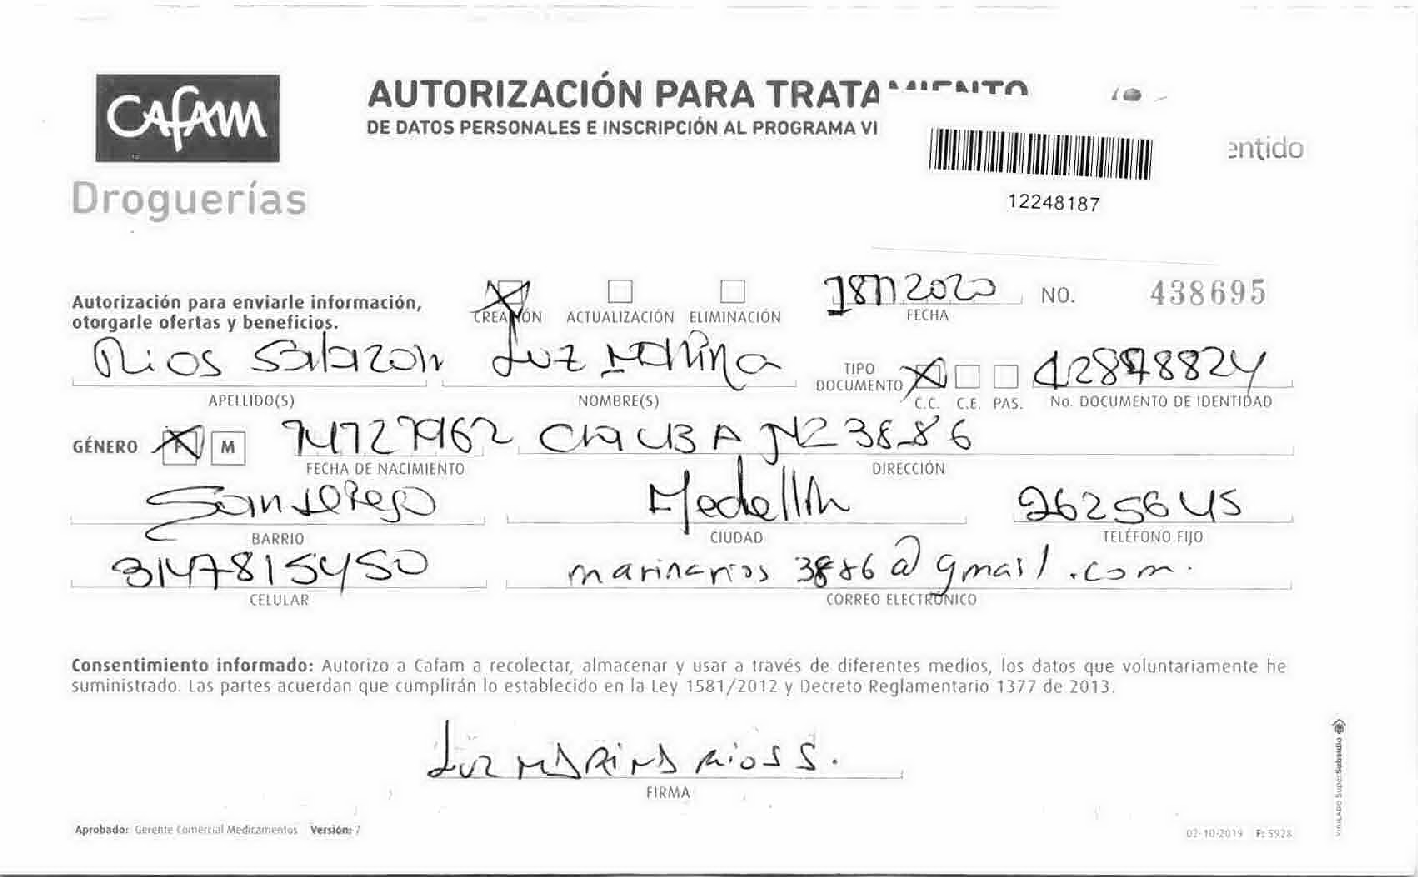 Cafam
Droguerías
AUTORIZACIÓN PARA TRATAMIENTO
DE DATOS PERSONALES E INSCRIPCIÓN AL PROGRAMA VI
entido
12248187
Autorización para enviarle información,
otorgarle ofertas y beneficios.
CREACIÓN ACTUALIZACIÓN ELIMINACIÓN
FECHA
NO. 438695
Rios Salazar Luz Marina
TIPO
DOCUMENTO
C.C. C.E. PAS.
APELLIDO(S) NOMBRE(S) No. DOCUMENTO DE IDENTIDAD
GÉNERO F M
FECHA DE NACIMIENTO DIRECCIÓN
Medellín 2625645
BARRIO CIUDAD TELÉFONO FIJO
3147815450 marinarios3886@gmail.com.
CELULAR CORREO ELECTRÓNICO
Consentimiento informado: Autorizo a Cafam a recolectar, almacenar y usar a través de diferentes medios, los datos que voluntariamente he
suministrado. Las partes acuerdan que cumplirán lo establecido en la Ley 1581/2012 y Decreto Reglamentario 1377 de 2013.
Luz Marina Rios S.
FIRMA
Aprobado: Gerente Comercial Medicamentos Versión: 7
02-10-2019 F: 5928
VIGILADO SuperSubsidio